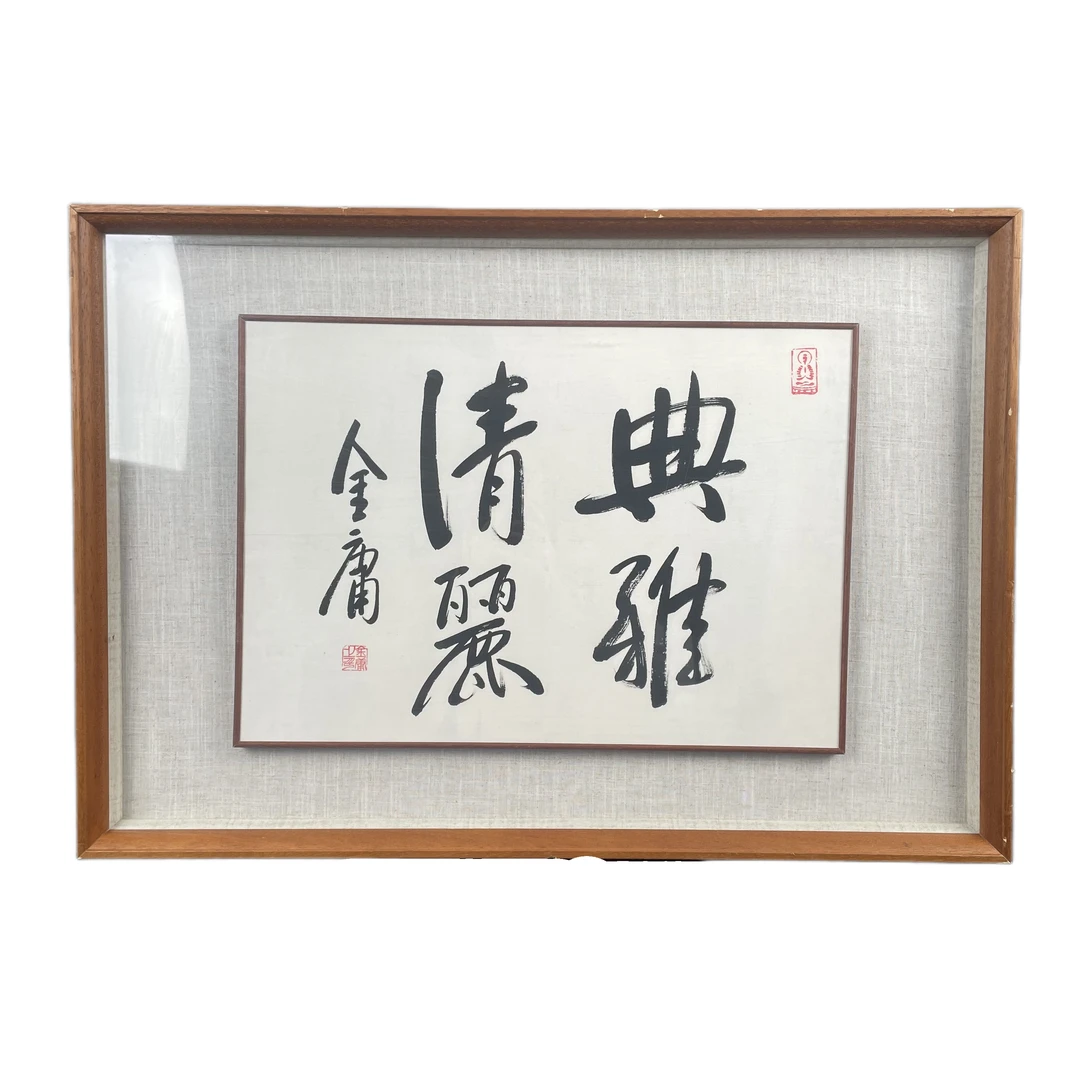 典雅
清麗
金庸